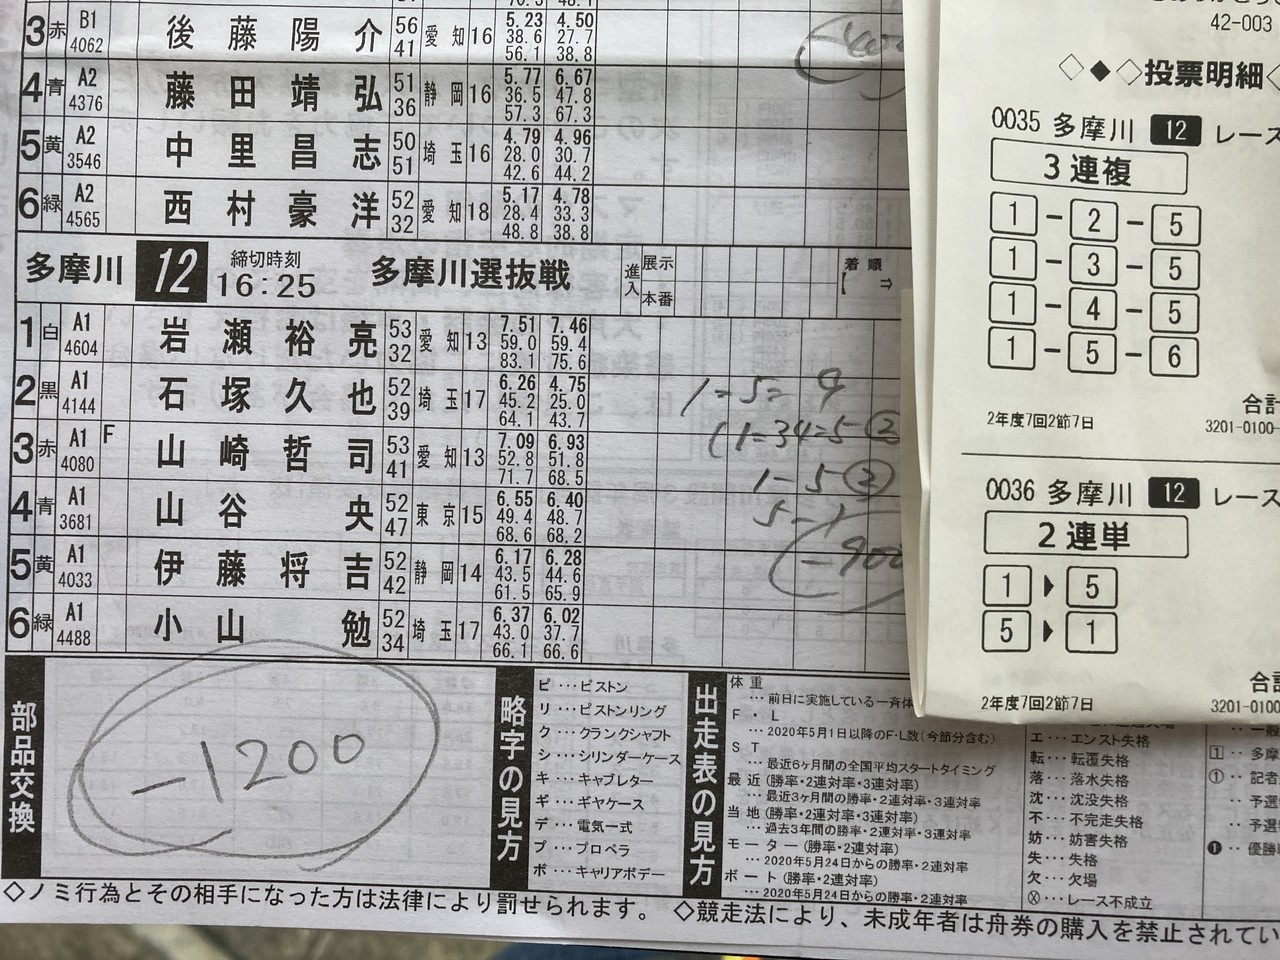 3 赤 B1 4062 後藤陽介 56 41 愛知 16 5.23 38.6 56.1 4.50 27.7 38.8
4 青 A2 4376 藤田靖弘 51 36 静岡 16 5.77 36.5 57.3 6.67 47.8 67.3
5 黄 A2 3546 中里昌志 50 51 埼玉 16 4.79 28.0 42.6 4.96 30.7 44.2
6 緑 A2 4565 西村豪洋 52 32 愛知 18 5.17 28.4 48.8 4.78 33.3 38.8
多摩川 12 締切時刻 16:25 多摩川選抜戦 進入 展示 本番 着順 ⇒
1 白 A1 4604 岩瀬裕亮 53 32 愛知 13 7.51 59.0 83.1 7.46 59.4 75.6
2 黒 A1 4144 石塚久也 52 39 埼玉 17 6.26 45.2 64.1 4.75 25.0 43.7
3 赤 A1 4080 F 山崎哲司 53 41 愛知 13 7.09 52.8 71.7 6.93 51.8 68.5
4 青 A1 3681 山谷央 52 47 東京 15 6.55 49.4 68.6 6.40 48.7 68.2
5 黄 A1 4033 伊藤将吉 52 42 静岡 14 6.17 43.5 61.5 6.28 44.6 65.9
6 緑 A1 4488 小山勉 52 34 埼玉 17 6.37 43.0 66.1 6.02 37.7 66.6
1-5②
5-1
-900
部品交換
-1200
略字の見方
ピ…ピストン
リ…ピストンリング
ク…クランクシャフト
シ…シリンダーケース
キ…キャブレター
ギ…ギヤケース
デ…電気一式
プ…プロペラ
ボ…キャリアボデー
出走表の見方
体重
…前日に実施している一斉体
F・L
…2020年5月1日以降のF・L数(今節分含む)
ST
…最近6ヶ月間の全国平均スタートタイミング
最近(勝率・2連対率・3連対率)
…最近3ヶ月間の勝率・2連対率・3連対率
当地(勝率・2連対率・3連対率)
…過去3年間の勝率・2連対率・3連対率
モーター(勝率・2連対率)
…2020年5月24日からの勝率・2連対率
ボート(勝率・2連対率)
…2020年5月24日からの勝率・2連対率
エ…エンスト失格
転…転覆失格
落…落水失格
沈…沈没失格
不…不完走失格
妨…妨害失格
失…失格
欠…欠場
Ⓧ…レース不成立
1‥多摩
①‥記者
‥予選
‥予選
❶‥優勝
◇ノミ行為とその相手になった方は法律により罰せられます。 ◇競走法により、未成年者は舟券の購入を禁止されてい
42-003
◇◆◇投票明細◇
0035 多摩川 12 レース
3連複
1-2-5
1-3-5
1-4-5
1-5-6
合計
2年度7回2節7日 3201-0100-
0036 多摩川 12 レース
2連単
1▶5
5▶1
合計
2年度7回2節7日 3201-0100